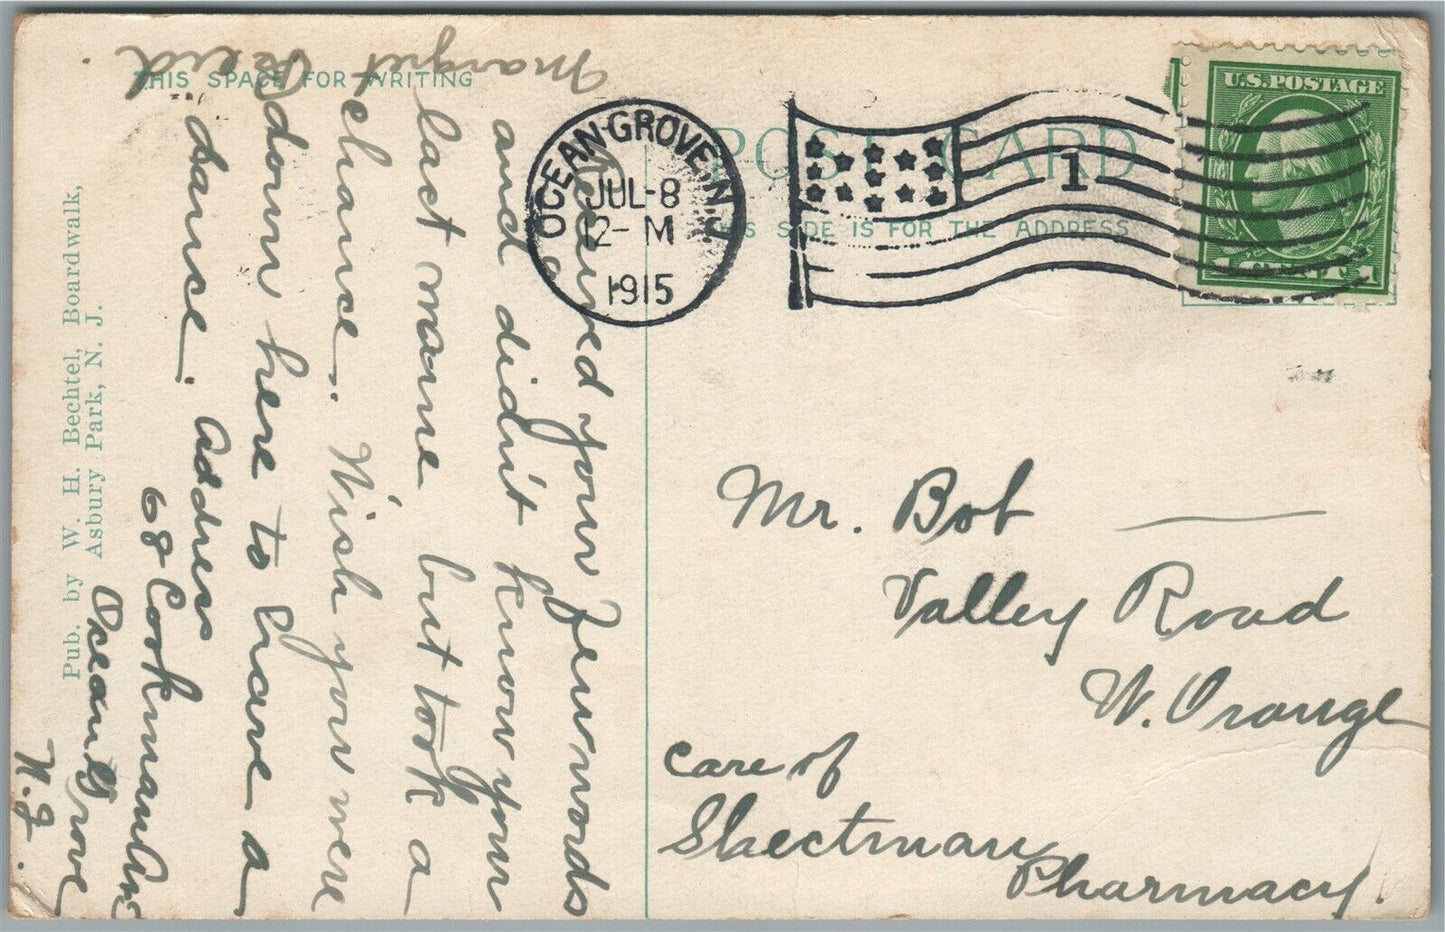 THIS SPACE FOR WRITING
POST CARD
THIS SIDE IS FOR THE ADDRESS
U.S. POSTAGE
1 CENT 1
OCEAN GROVE, N.J.
JUL-8
12-M
1915
1
Received your few words
and didn't know your
last name but took a
chance. Wish you were
down here to have a
dance. Address
68 Cookman Ave
Ocean Grove
N.J.
Margret Reid
Mr. Bob —
Valley Road
W. Orange
care of
Shectman
Pharmacy.
Pub. by W. H. Bechtel, Boardwalk,
Asbury Park, N. J.